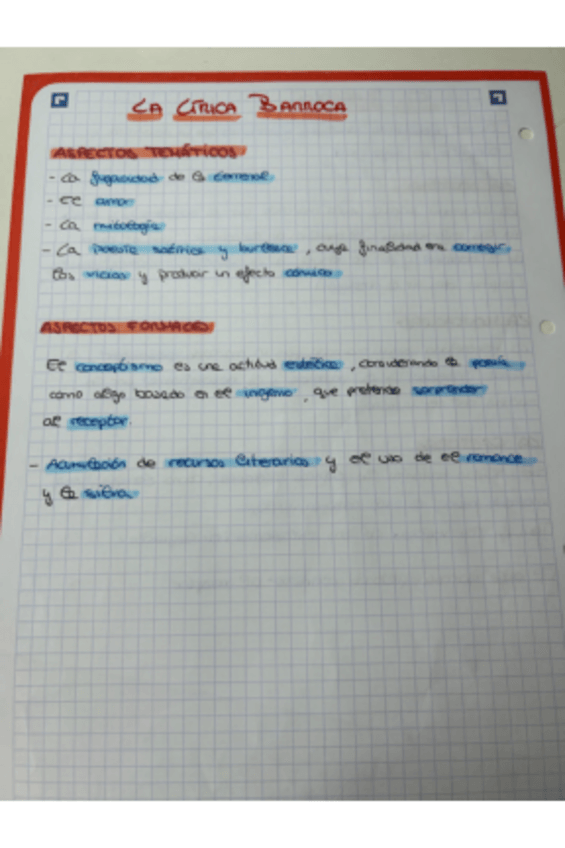 LA LÍRICA BARROCA
ASPECTOS TEMÁTICOS
- La fugacidad de lo terrenal
- El amor
- La mitología
- La poesía satírica y burlesca, cuya finalidad era corregir
los vicios y producir un efecto cómico
ASPECTOS FORMALES
El conceptismo es una actitud estética, considerando la poesía
como algo basado en el ingenio, que pretende sorprender
al receptor.
- Acumulación de recursos literarios y el uso de el romance
y la silva